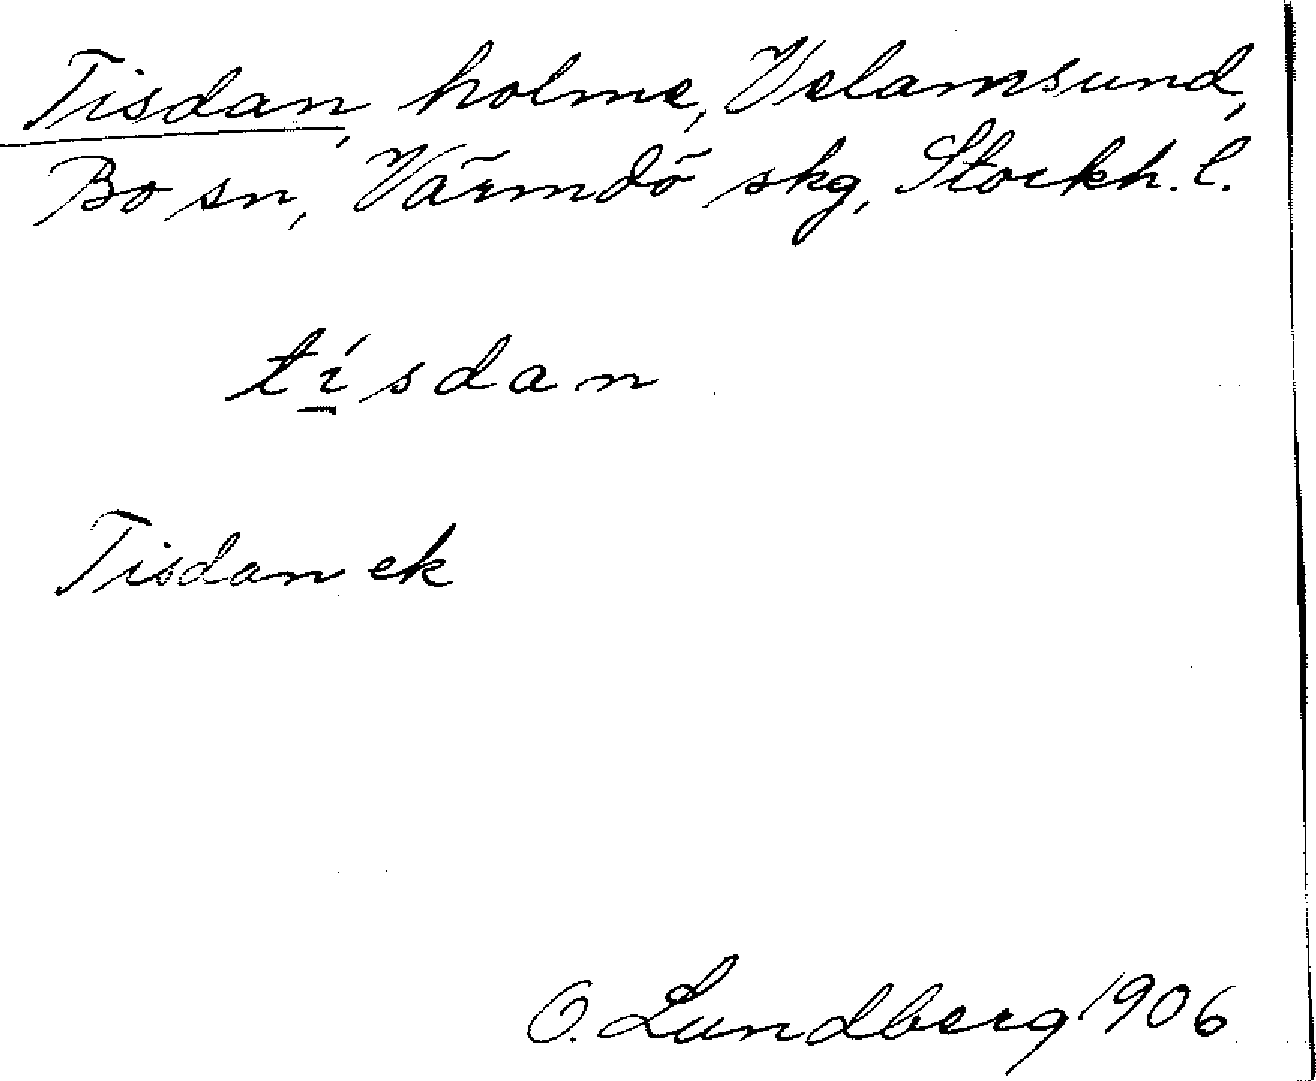 Tisdan, holme, Velamsund,
Bo sn, Värmdö skg, Stockh. l.
tísdan
Tisdan ek
O. Lundberg 1906